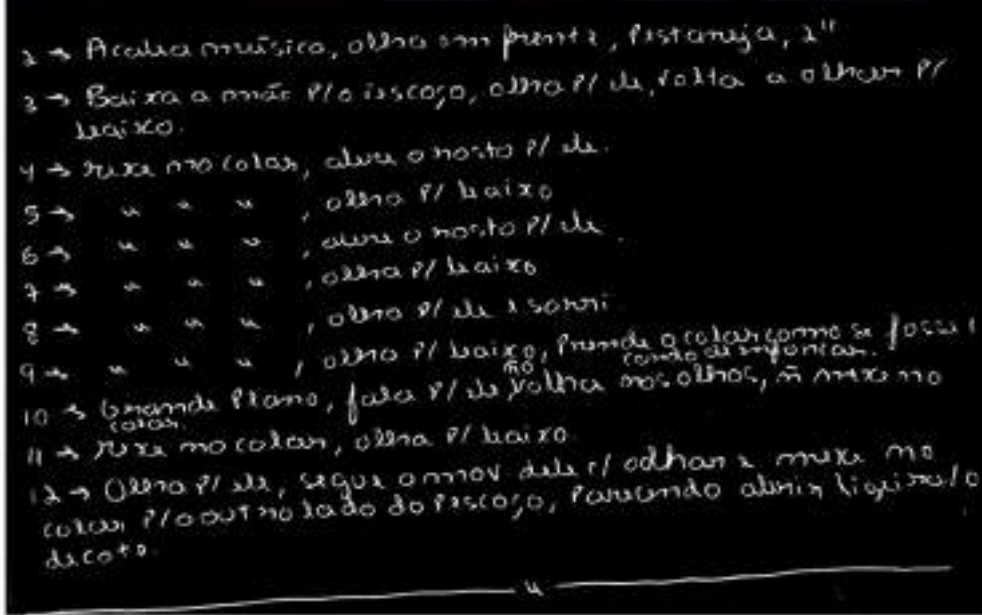 2 → Acaba música, olha em frente, Pestaneja, 2"
3 → Baixa a mão P/o pescoço, olha P/ ele, volta a olhar P/
baixo.
4 → Mexe no colar, abre o rosto P/ ele.
5 → " " " , olha P/ baixo
6 → " " " , abre o rosto P/ ele.
7 → " " " , olha P/ baixo
8 → " " " , olha P/ ele e sorri
9 → " " " , olha P/ baixo, Prende o colar como se fosse
10 → Grande Plano, fala P/ ele olha nos olhos, ñ mexe no
colar.
11 → Mexe no colar, olha P/ baixo.
12 → Olha P/ ele, segue o mov dele c/ o olhar e mexe no
colar P/o outro lado do Pescoço, Parecendo abrir ligeira/ o
decote.